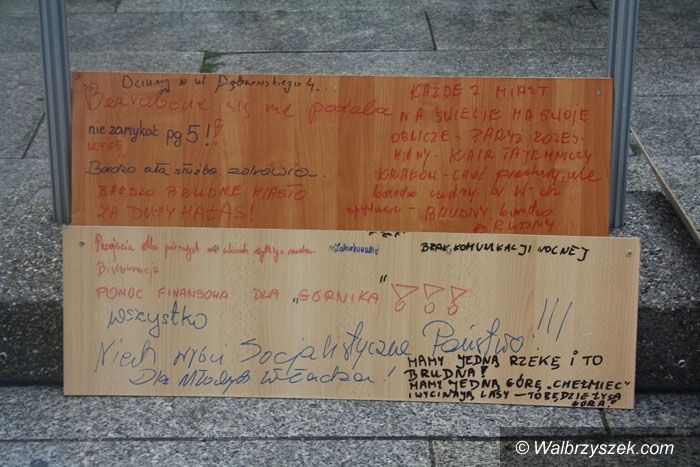 Dziury w ul Dąbrowskiego 4..
Bezrobocie się nie podoba
nie zamykać pg 5!!
Bardzo zła służba zdrowia..
BARDZO BRUDNE MIASTO
ZA DUŻY HAŁAS!
KAŻDE Z MIAST
NA ŚWIECIE MA SWOJE
OBLICZE - PARYŻ ROZEŚ-
MIANY - KAIR TAJEMNICZY
KRAKÓW - CHOĆ
bardzo
BRUDNY bardzo
BRUDNY
Przejścia dla pieszych
Biurokracja
BRAK KOMUNIKACJI NOCNEJ
POMOC FINANSOWA DLA „GÓRNIKA" !!!
wszystko
Niech wróci Socjalistyczne Państwo!!!
Dla Młodych Władza!
MAMY JEDNĄ RZEKĘ I TO
BRUDNA!
MAMY JEDNĄ GÓRĘ „CHEŁMIEC"
I WYCINAJĄ LASY - TO BĘDZIE ŁYSA
GÓRA!
© Walbrzyszek.com